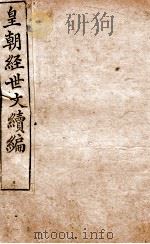 皇朝經世文續編
mtoou.info